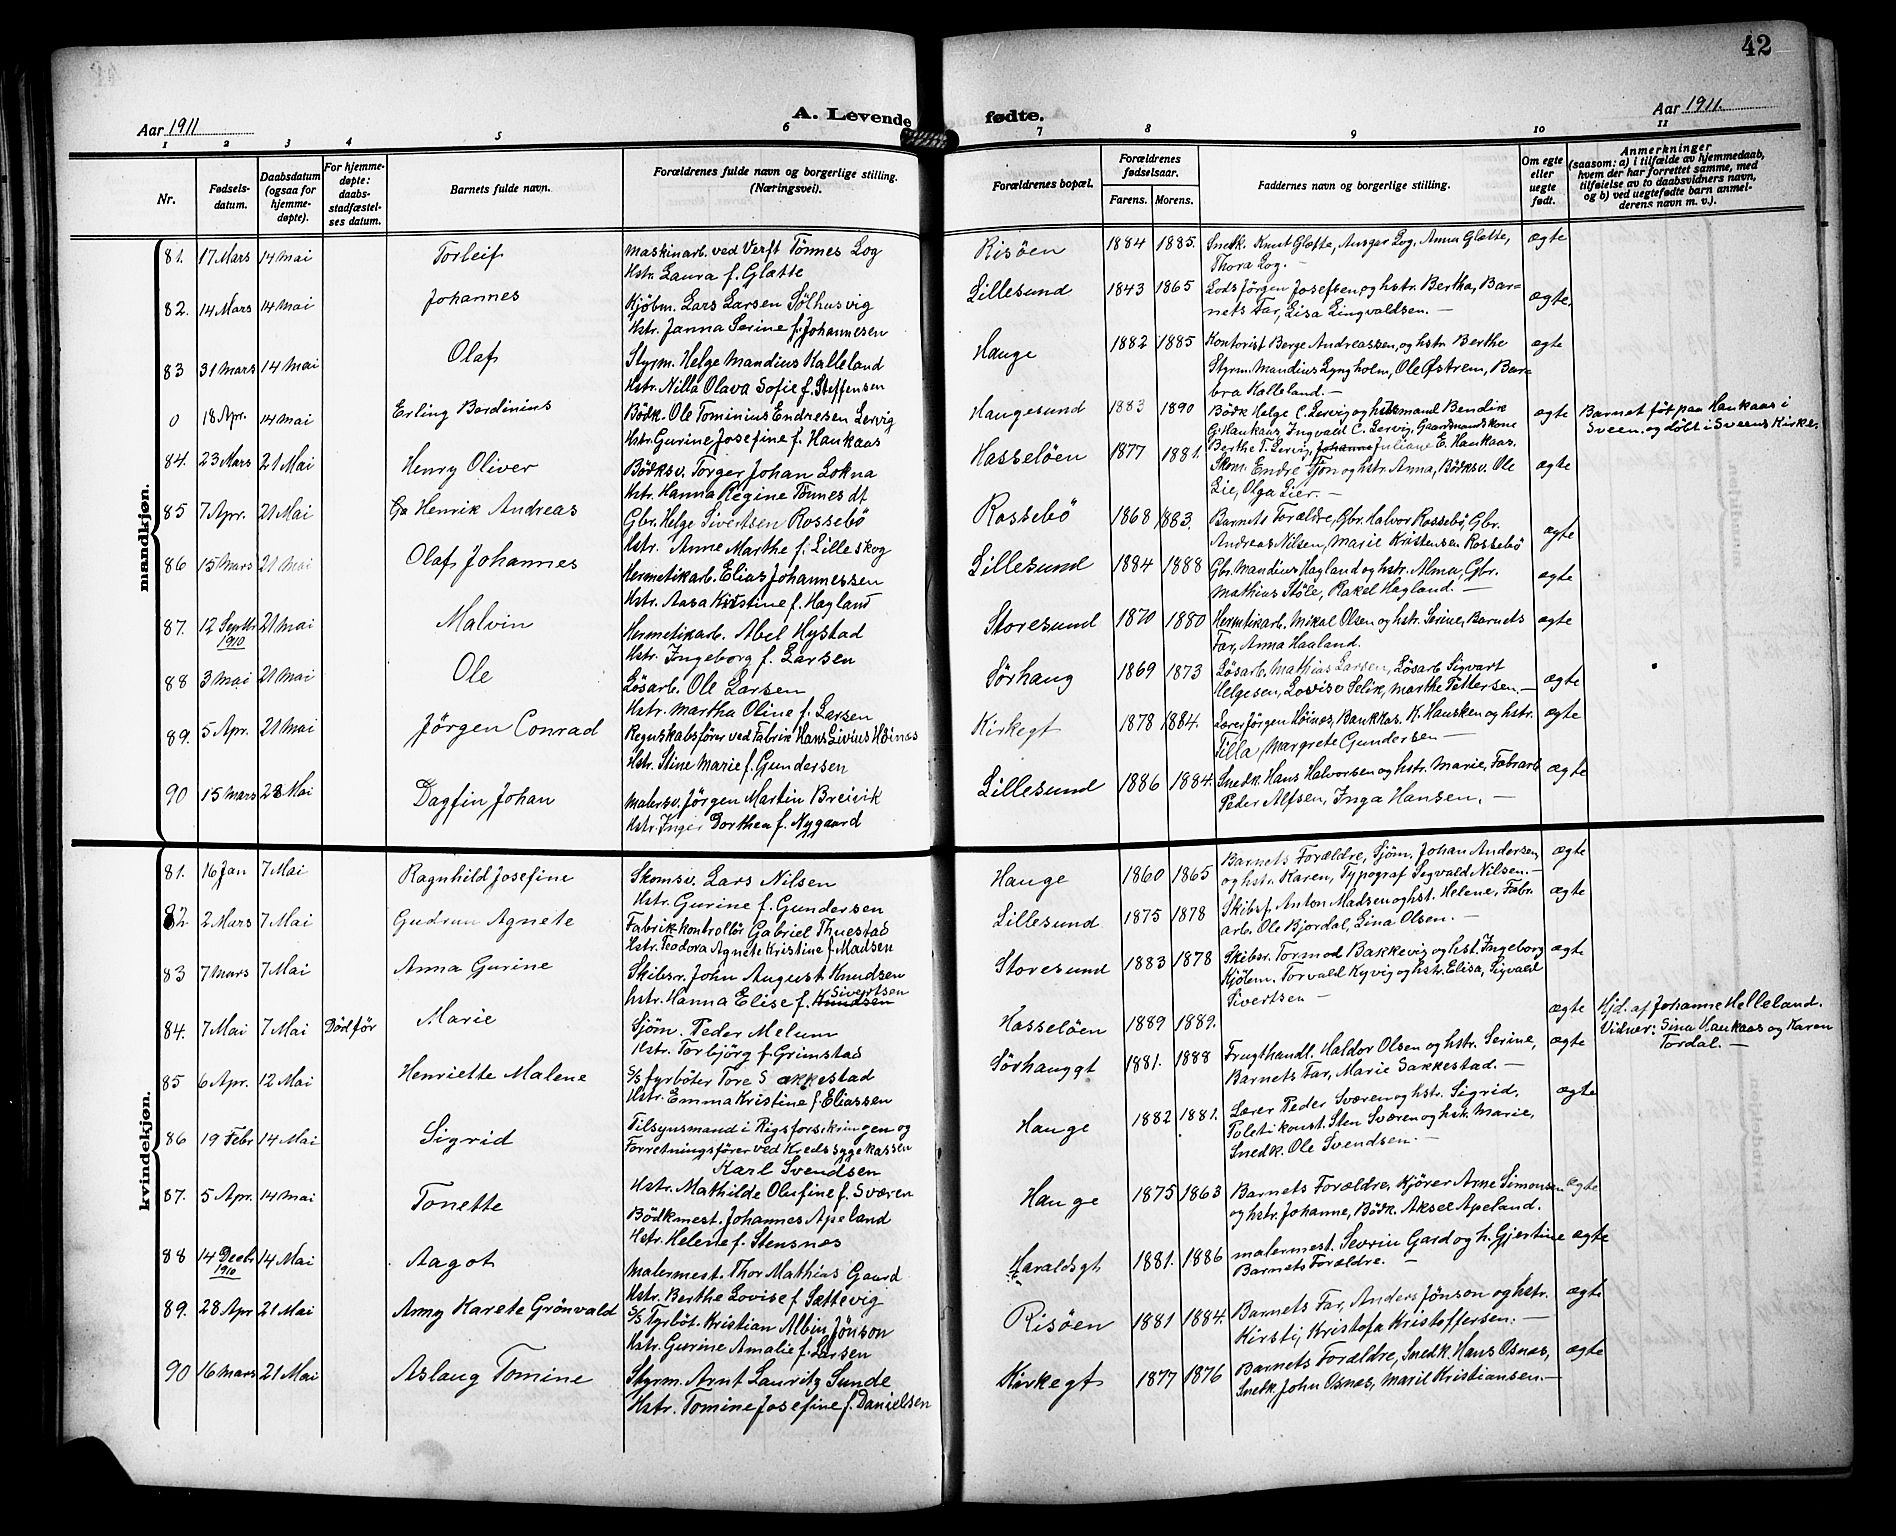 42
Aar 1911
A. Levende fødte.
Aar 1911.
1 2 3 4 5 6 7 8 9 10 11
Nr.
Fødsels-
datum.
Daabsdatum
(ogsaa for
hjemme-
døpte).
For hjemme-
døpte:
daabs-
stadfæstel-
ses datum.
Barnets fulde navn.
Forældrenes fulde navn og borgerlige stilling.
(Næringsvei).
Forældrenes bopæl.
Forældrenes
fødselsaar.
Farens. Morens.
Faddernes navn og borgerlige stilling.
Om egte
eller
uegte
født.
Anmerkninger
(saasom: a) i tilfælde av hjemmedaab,
hvem der har forrettet samme, med
tilføielse av to daabsvidners navn,
og b) ved uegtefødte barn anmel-
derens navn m. v.).
mandkjøn.
81. 17 Mars 14 Mai Torleif Maskinarb. ved Verft Tönnes Log Risöen 1884 1885. Snedk. Knut Glette, Ansgar Log, Anna Glette, ægte
Hstr. Laura f. Glette Thora Log. —
82. 14 Mars 14 Mai Johannes Kjöbm. Lars Larsen Sölhusvig Lillesund 1843 1865 Lods Jörgen Josefsen og hstr. Bertha, Bar- ægte.
Hstr. Janna Serine f. Johannesen nets Far, Lisa Lingvaldsen. —
83 31 Mars 14 Mai Olaf Styrm. Helge Mandius Kalleland Hauge 1882 1885 Kontorist Berge Andreassen, og hstr. Berthe ægte
Hstr. Nilla Olava Sofie f. Steffensen Styrm. Mandius Lyngholm, Ole Østrem, Bar-
bra Kalleland. —
0 18 Apr. 14 Mai Erling Bardinius Bödk. Ole Tominius Endresen Lervig Haugesund 1883 1890 Bödk Helge C. Lervig og hstr. Gaardsmand Bendik ægte Barnet föt paa Haukaas i
Hstr. Gurine Josefine f. Haukaas G. Haukaas, Ingvald C. Lervig, Gaardmandskone Sveen, og döbt i Sveens Kirke.
Berthe T. Lervig, Johanne Juliane E. Haukaas.
84. 23 Mars 21 Mai Henry Oliver Bödksv. Torger Johan Lokna Hasselöen 1877 1881. Skom. Endre Tjön og hstr. Anna, Bödksv. Ole ægte
Hstr. Hanna Regine Tönnes dt Lie, Olga Lier. —
85 7 Apr. 21 Mai Henrik Andreas Gbr. Helge Sivertsen Rossebö Rossebö 1868 1883. Barnets Forældre, Gbr. Halvor Rossebö, Gbr. ægte
Hstr. Anne Marthe f. Lilleskog Andreas Nilsen, Marie Kristensen Rossebö
86 15 Mars 21 Mai Olaf Johannes Hermetikarb. Elias Johannessen Lillesund 1884 1888 Gbr. Mandius Hagland og hstr. Alma, Gbr. ægte
Hstr. Aasa Kristine f. Hagland Mathias Stöle, Rakel Hagland. —
87. 12 Septbr 1910 21 Mai Malvin Hermetikarb. Abel Hystad Storesund 1870 1880 Hermetikarb. Mikal Olsen og hstr. Serine, Barnets ægte
Hstr. Ingeborg f. Larsen Far, Anna Haaland.
88 3 Mai 21 Mai Ole Lösarb. Ole Larsen Sörhaug 1869 1873 Lösarb. Mathias Larsen, Lösarb. Sigvart ægte
Hstr. Martha Oline f. Larsen Helgesen, Lovise Selik, Marthe Pettersen. —
89. 5 Apr. 21 Mai Jörgen Conrad Regnskabsförer ved Fabrik Hans Livius Höines Kirkegt 1878 1884. Lærer Jörgen Höines, Bankkas. K. Hausken og hstr. ægte
Hstr. Stine Marie f. Gundersen Tilla, Margrete Gundersen —
90 15 Mars 28 Mai Dagfin Johan Malersv. Jörgen Martin Breivik Lillesund 1886 1884. Snedk. Hans Halvorsen og hstr. Marie, Fabrarb ægte
Hstr. Inger Dorthea f. Nygaard Peder Alfsen, Inga Hansen. —
kvindekjøn.
81. 16 Jan 7 Mai Ragnhild Josefine Skomsv. Lars Nilsen Hauge 1860 1865 Barnets Forældre, Sjöm. Johan Andersen ægte
Hstr. Gurine f. Gundersen og hstr. Karen, Typograf Sigvald Nilsen. —
82 2 Mars 7 Mai Gudrun Agnete Fabrik-kontrollör Gabriel Thuestad Lillesund 1875 1878 Skibsf. Anton Madsen og hst. Helene, Fabr. ægte
Hstr. Teodora Agnete Kristine f. Madsen arb. Ole Bjordal, Lina Olsen. —
83 7 Mars 7 Mai Anna Gurine Skibsr. John August Knudsen Storesund 1883 1878 Skibsr. Tormod Bakkevig og hst. Ingeborg ægte
hstr. Hanna Elise f. Knudsen Sivertsen Kjöbm. Torvald Kyvig og hstr. Elisa, Sigvald
Sivertsen —
84. 7 Mai 7 Mai Död för Marie Sjöm. Peder Melum Hasselöen 1889 1889. ægte Hjd. af Johanne Helleland.
Hstr. Torbjörg f. Grimstad Vidner: Sina Haukaas og Karen
Tordal. —
85 6 Apr. 12 Mai Henriette Malene S/S fyrböter Tore Sakkestad Sörhauggt 1881. 1888 Frugthandl. Haldor Olsen og hstr. Serine, ægte
Hstr. Emma Kristine f. Eliassen Barnets Far, Marie Sakkestad. —
86 19 Febr 14 Mai Sigrid Tilsynsmand i Rigsforsikringen og Hauge 1882 1881. Lærer Peder Sværen og hstr. Sigrid. ægte
Forretningsförer ved Kredssygekassen Politikonst. Sten Sværen og hstr. Marie,
Karl Svendsen Snedk. Ole Svendsen. —
Hstr. Mathilde Olufine f. Sværen
87. 5 Apr. 14 Mai Tonette Bödkmest. Johannes Apeland Hauge 1875 1863 Barnets Forældre, Kjörer Arne Simonsen ægte
Hstr. Helene f. Stensnes og hstr. Johanne, Bödk. Aksel Apeland.
88 14 Decbr 1910 14 Mai Aagot Malermest. Thor Mathias Gaard Haraldsgt 1881. 1886 Malermest. Severin Gard og h. Gjertine ægte
Hstr. Berthe Lovise f. Sættevig Barnets Forældre. —
89. 28 Apr 21 Mai Anny Karete Grönvald S/S Fyrböt. Kristian Albin Jönson Risöen 1881 1884. Barnets Far, Anders Jönson og hstr. ægte
Hstr. Gurine Amalie f. Larsen Kirsti, Kristofa Kristoffersen. —
90 16 Mars 21 Mai Aslaug Tomine Styrm. Arnt Lauritz Sunde Kirkegt 1877 1876 Barnets Forældre, Snedk. Hans Osnes, ægte
Hstr. Tomine Josefine f. Danielsen Snedk John Osnes, Maril Kristiansen. —